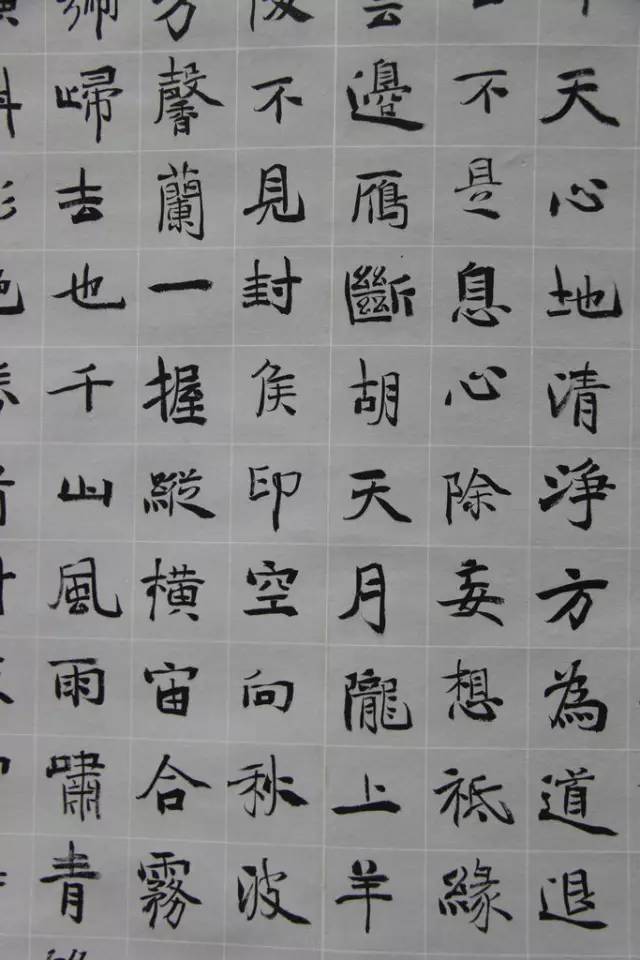 天心地清淨方為道退
不是息心除妄想祗緣
邊鴈斷胡天月隴上羊
不見封侯印空向秋波
馨蘭一握縱橫宙合霧
歸去也千山風雨嘯青